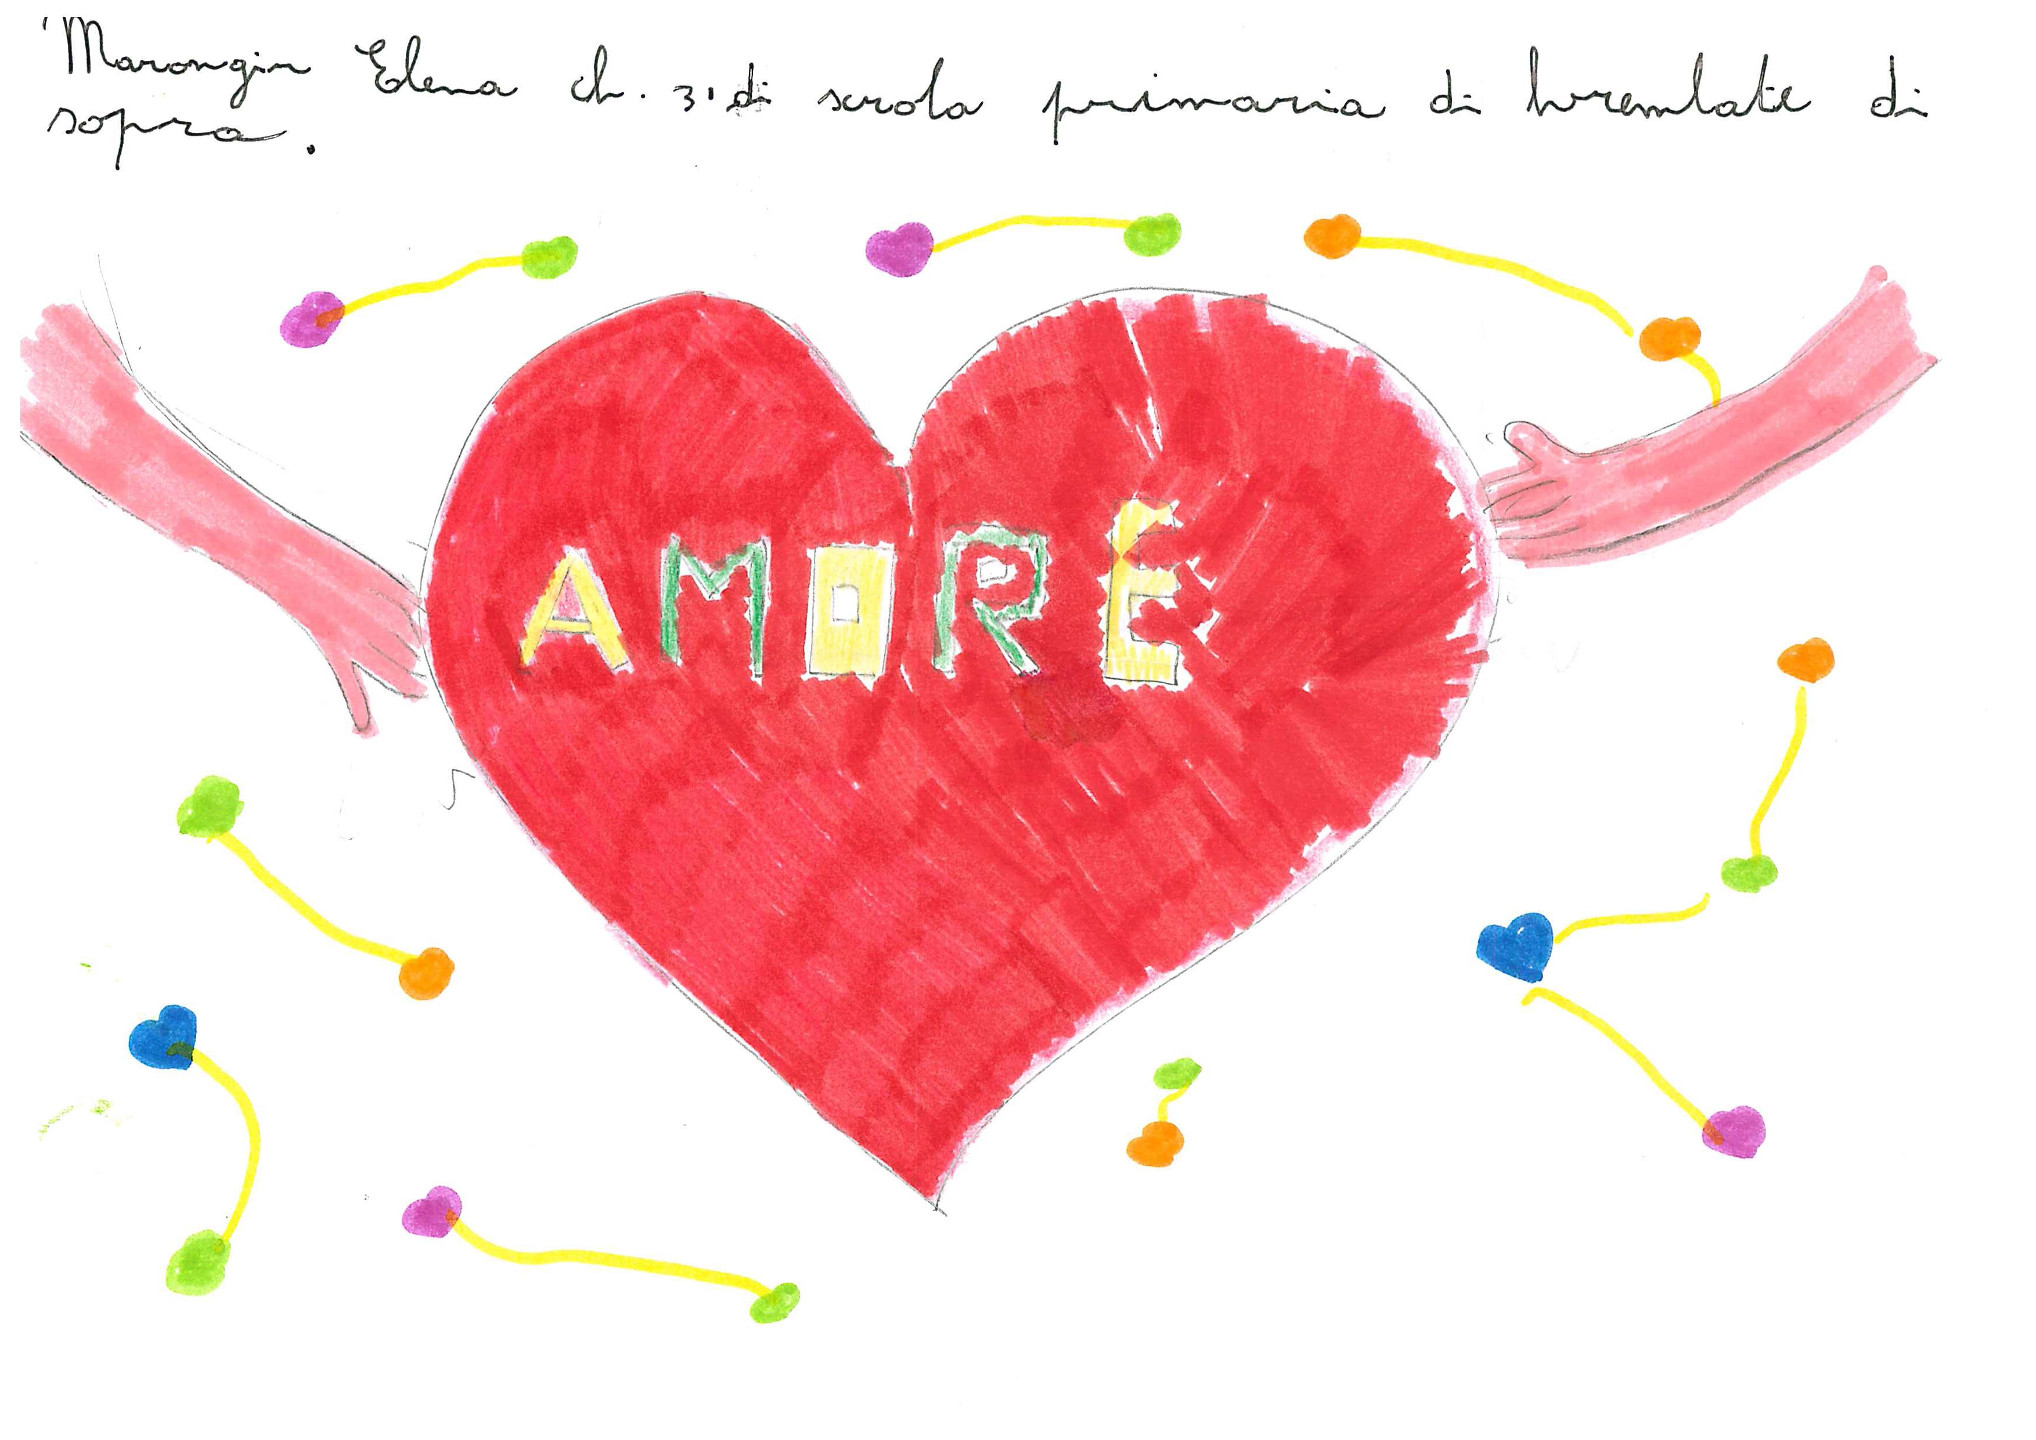 Marongiu Elena cl. 3ª di scuola primaria di brembate di
sopra.
AMORE